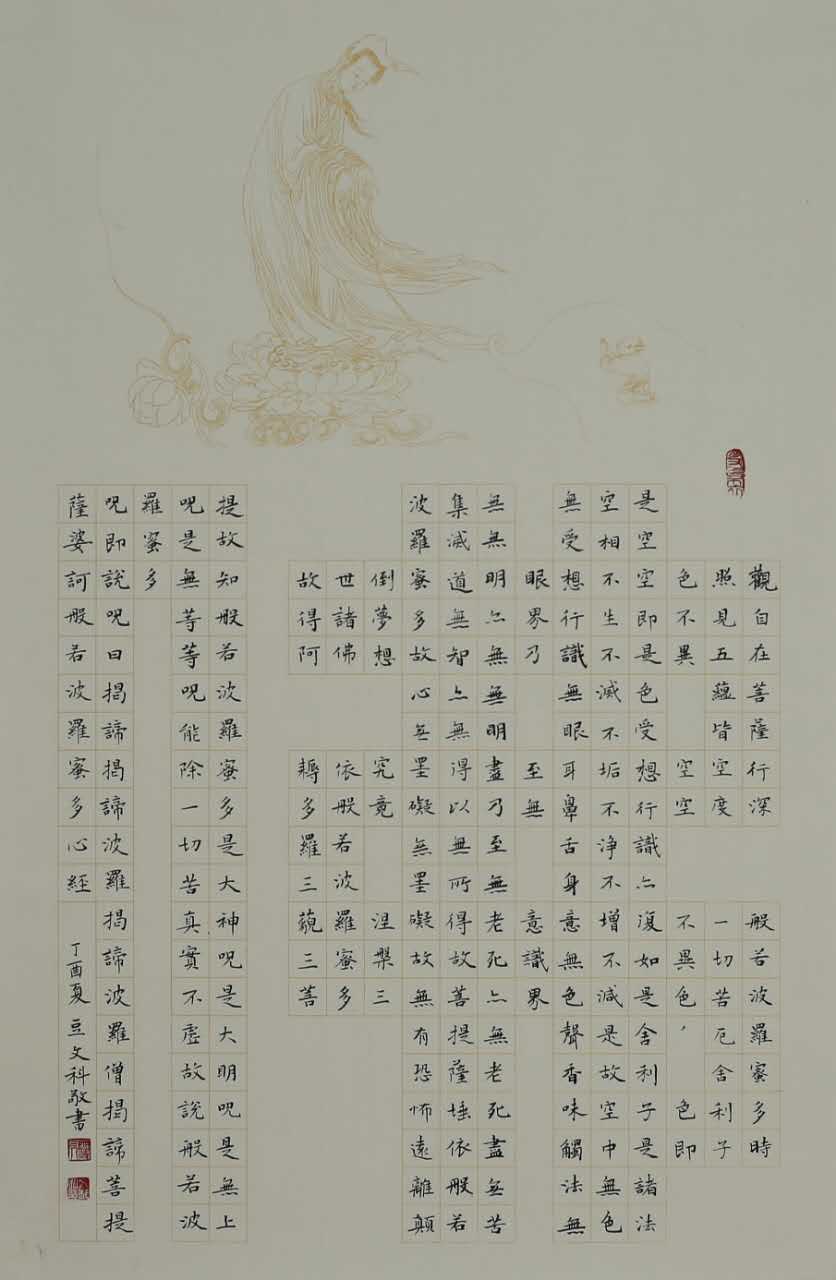 觀自在菩薩行深般若波羅蜜多時
照見五蘊皆空度一切苦厄舍利子
色不異空空不異色，色即
是空空即是色受想行識亦復如是舍利子是諸法
空相不生不滅不垢不淨不增不減是故空中無色
無受想行識無眼耳鼻舌身意無色聲香味觸法無
眼界乃至無意識界
無無明亦無無明盡乃至無老死亦無老死盡无苦
集滅道無智亦無得以無所得故菩提薩埵依般若
波羅蜜多故心无罣礙無罣礙故無有恐怖遠離顛
倒夢想究竟涅槃三
世諸佛依般若波羅蜜多
故得阿耨多羅三藐三菩
提故知般若波羅蜜多是大神呪是大明呪是無上
呪是無等等呪能除一切苦真實不虛故說般若波
羅蜜多
呪即說呪曰揭諦揭諦波羅揭諦波羅僧揭諦菩提
薩婆訶般若波羅蜜多心經
丁酉夏豆文科敬書